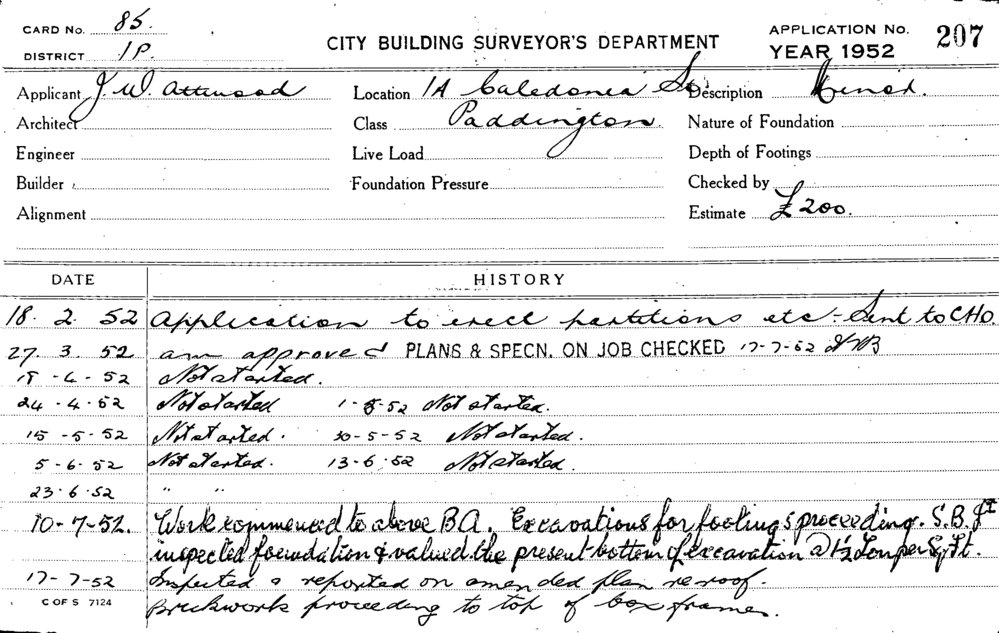 CARD No. 85.
DISTRICT 1P.
CITY BUILDING SURVEYOR'S DEPARTMENT
APPLICATION No. 207
YEAR 1952
Applicant J. W. Attwood
Location 1A Caledonia St. Description Minor.
Architect
Class Paddington.
Nature of Foundation
Engineer
Live Load
Depth of Footings
Builder
Foundation Pressure
Checked by
Alignment
Estimate £200.
DATE HISTORY
18. 2. 52 Application to erect partitions etc - Sent to CHO.
27. 3. 52 am approved PLANS & SPECN. ON JOB CHECKED 17-7-52
18 - 4 - 52 Not started.
24 . 4 . 52 Not started 1-5-52 Not started.
15 - 5 - 52 Not started. 30-5-52 Not started.
5 - 6 . 52 Not started. 13-6.52 Not started.
23.6.52 " "
10-7-52. Work commenced to above B.A. Excavations for footings proceeding. S.B.
inspected foundation & valued the present bottom of excavation @ 1½ Ton per Sq Ft.
17-7-52 Inspected & reported on amended plan re roof.
Brickwork proceeding to top of box frames.
C OF S 7124